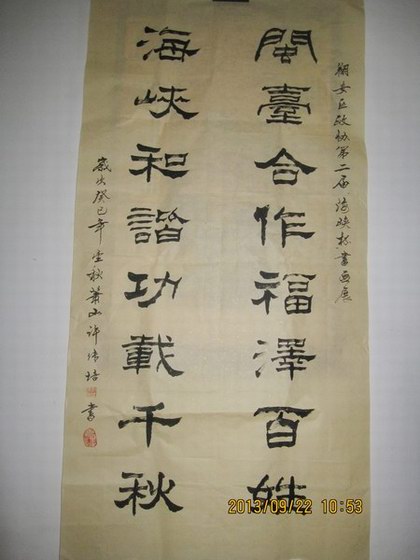 翔安区政协第二届海峡杯書画展
閩臺合作福澤百姓
海峽和諧功載千秋
歲次癸巳年金秋蕭山許培書
2013/09/22 10:53